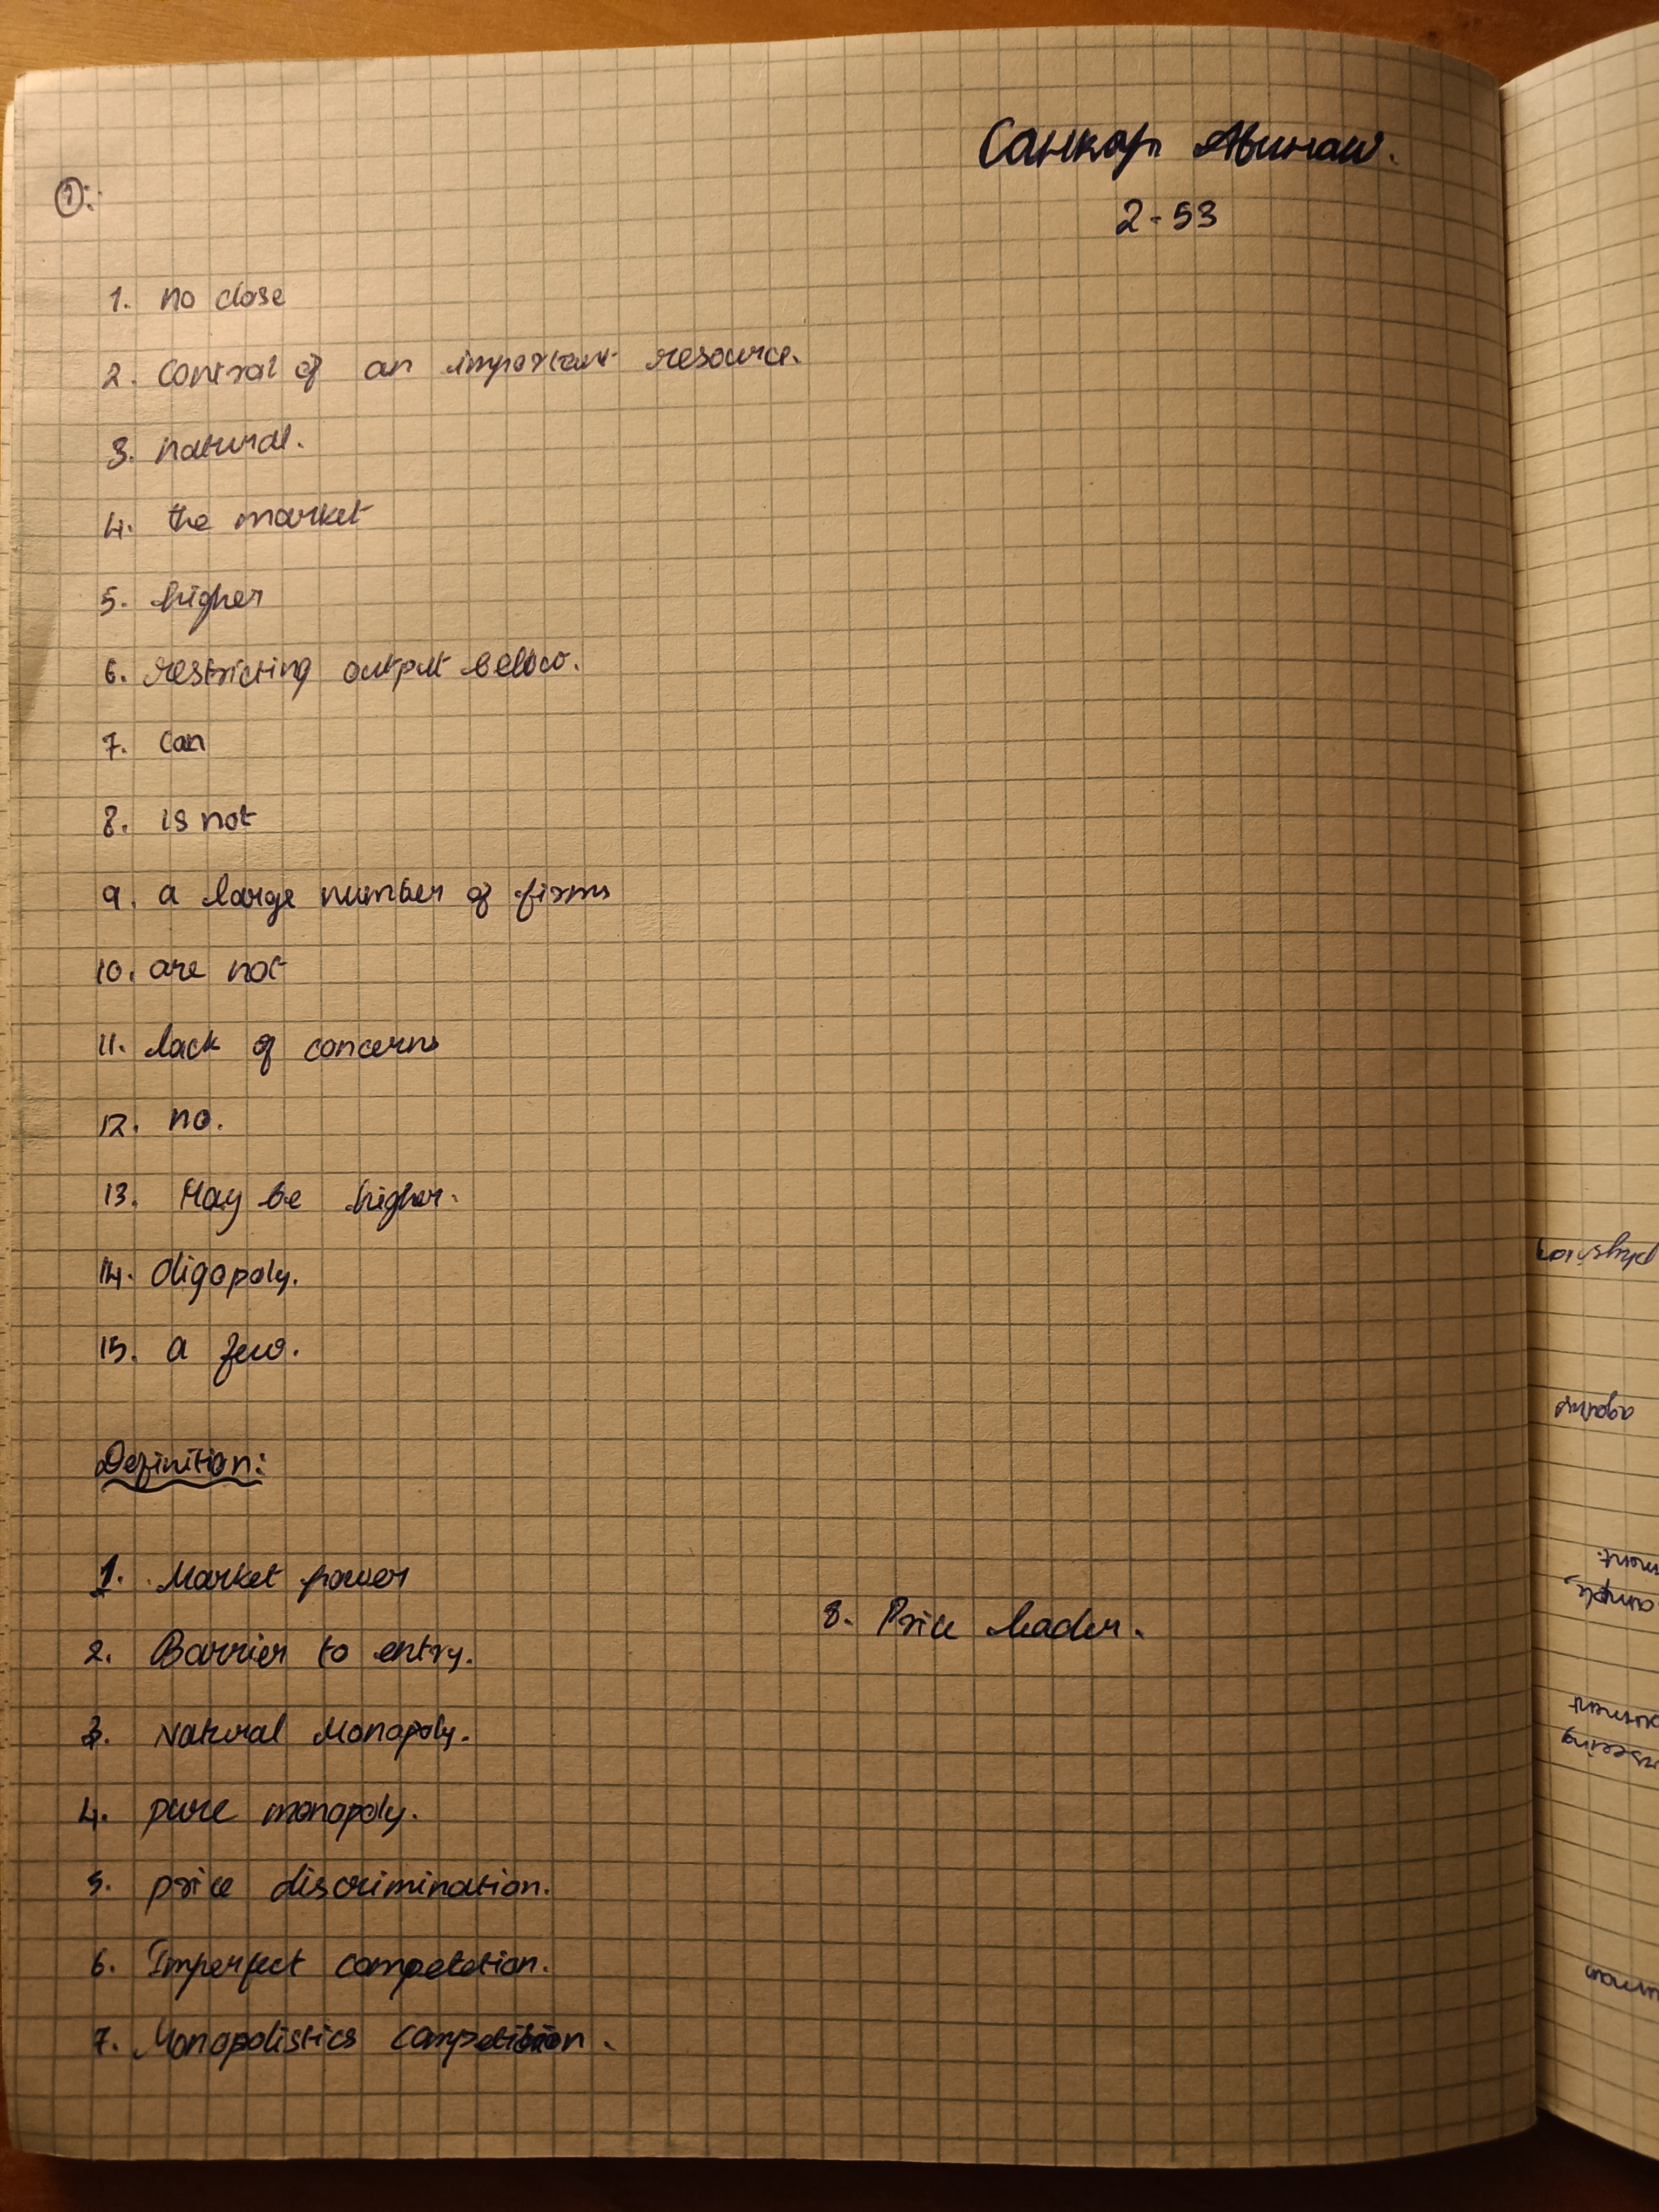 Санкар Авинаш.
2-53
①:
1. no close
2. Control of an important resource.
3. natural.
4. the market
5. higher
6. restricting output below.
7. can
8. is not
9. a large number of firms
10. are not
11. lack of concerns
12. no.
13. May be higher.
14. Oligopoly.
15. a few.
Definition:
1. Market power
2. Barrier to entry.
3. Natural Monopoly.
4. pure monopoly.
5. price discrimination.
6. Imperfect competetion.
7. Monopolistics competision.
8. Price leader.